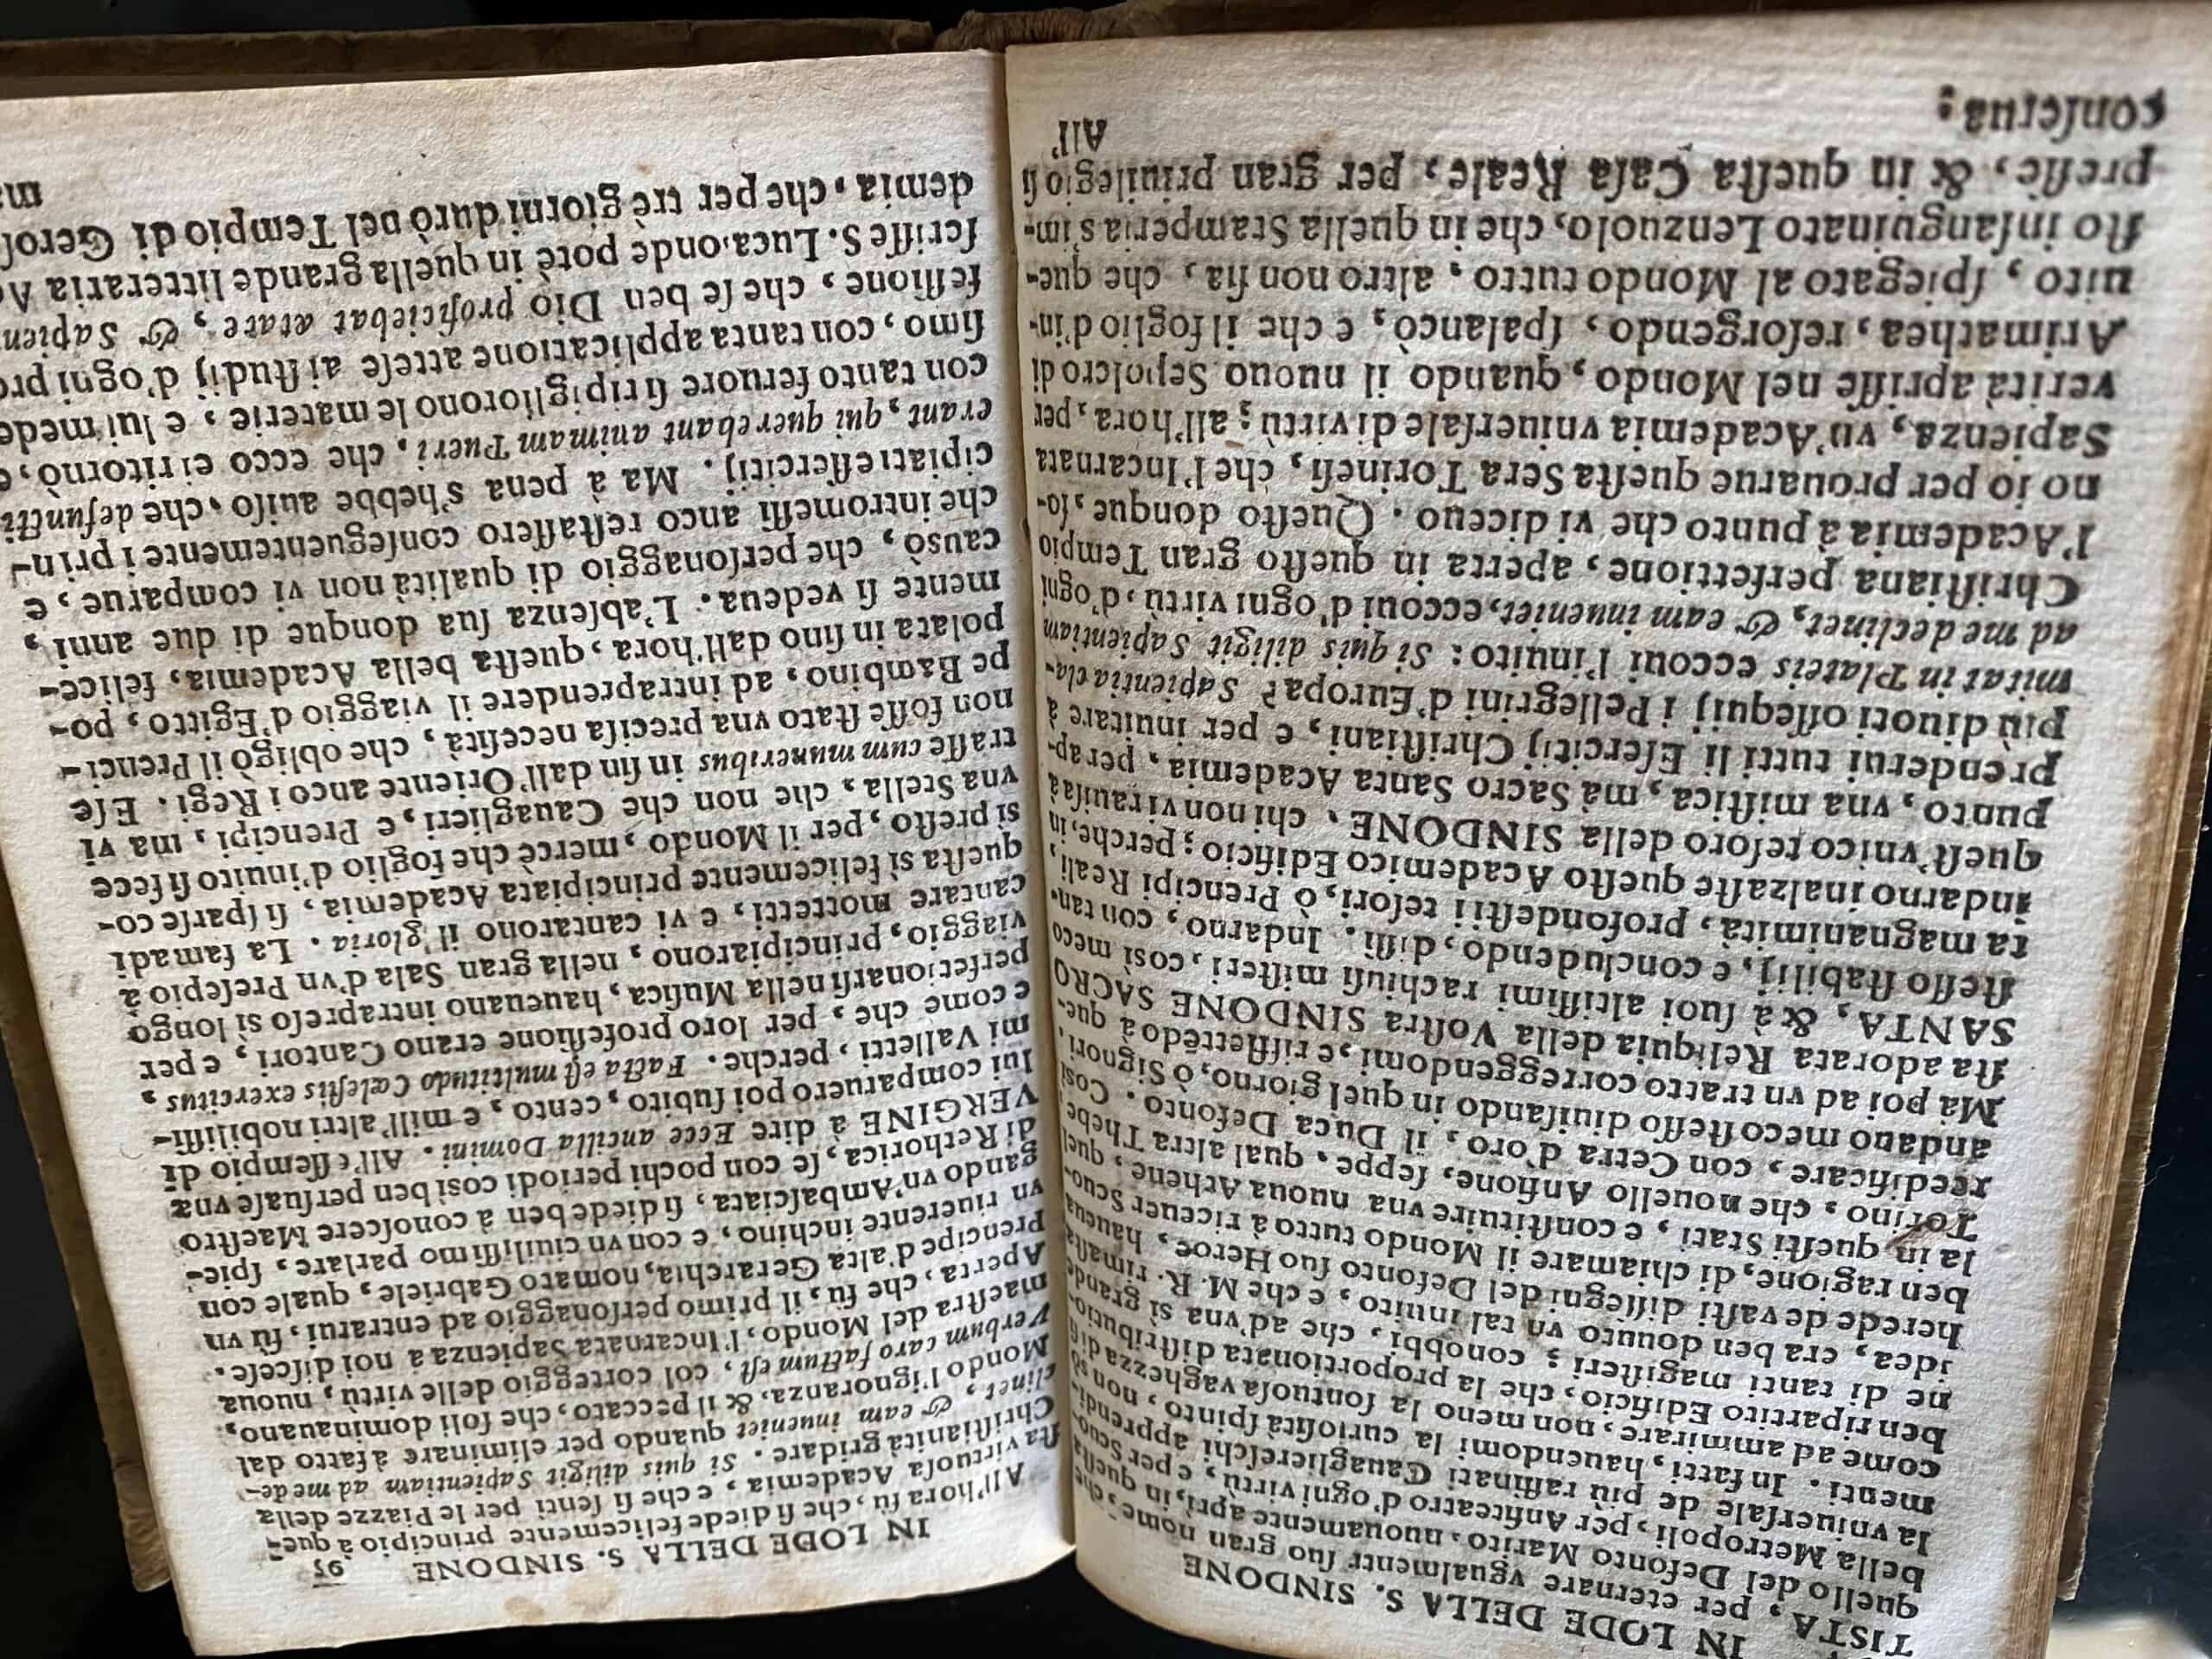 IN LODE DELLA S. SINDONE
TISTA, per eternare vgualmente ſuo gran nome, che
quello del Defonto Marito, nuouamente aprì, in queſta
bella Metropoli, per Anfiteatro d'ogni virtù, e per Scuo-
la vniuerſale de più raffinati Cauagliereſchi apprendi-
menti. In fatti, hauendomi la curioſità ſpinto, non sò
come ad ammirare, non meno la ſontuoſa vaghezza di sì
ben ripartito Edificio, che la proportionata diſtributio-
ne di tanti magiſteri; conobbi, che ad'vna sì grande
idea, era ben douuto vn tal inuito, e che M. R. rimaſta
herede de vaſti diſſegni del Defonto ſuo Heroe, haueua
ben ragione, di chiamare il Mondo tutto à riceuer Scuo-
la in queſti Stati, e conſtituire vna nuoua Athene, quel
Torino, che nouello Anfione, ſeppe, qual altra Thebe,
reedificare, con Cetra d'oro, il Duca Defonto. Così
andauo meco ſteſſo diuiſando in quel giorno, ò Signori.
Mà poi ad vn tratto correggendomi, e riflettẽdo à que-
ſta adorata Reliquia della Voſtra SINDONE SACRO
SANTA, & à ſuoi altiſſimi rachiuſi miſteri, così meco
ſteſſo ſtabilij, e concludendo, diſſi. Indarno, con tan-
ta magnanimità, profondeſtii teſori, ò Prencipi Reali,
indarno inalzaſte queſto Academico Edificio; perche, in
queſt'vnico teſoro della SINDONE, chi non vi rauiſa à
punto, vna miſtica, mà Sacro Santa Academia, per ap-
prenderui tutti li Eſercitij Chriſtiani, e per inuitare à
più diuoti oſſequij i Pellegrini d'Europa? Sapientia cla-
mitat in Plateis eccoui l'inuito: Si quis diligit Sapientiam
ad me declinet, & eam inueniet, eccoui d'ogni virtù, d'ogni
Chriſtiana perfettione, aperta in queſto gran Tempio
l'Academia à punto che vi diceuo. Queſto donque, ſo-
no io per prouarue queſta Sera Torineſi, che l'Incarnata
Sapienza, vn'Academia vniuerſale di virtù; all'hora, per
verità apriſſe nel Mondo, quando il nuouo Sepolcro di
Arimathea, reſorgendo, ſpalancò, e che il foglio d'in-
uito, ſpiegato al Mondo tutto, altro non ſia, che que-
ſto inſanguinato Lenzuolo, che in quella Stamperia s'im-
preſſe, & in queſta Caſa Reale, per gran priuilegio ſi
conſerua;
All'
IN LODE DELLA S. SINDONE 95
All'hora fù, che ſi diede felicemente principio à que-
ſta virtuoſa Academia, e che ſi ſentì per le Piazze della
Chriſtianità gridare. Si quis diligit Sapientiam ad me de-
clinet, & eam inueniet quando per eliminare à fatto dal
Mondo l'ignoranza, & il peccato, che ſoli dominauano,
Verbum caro factum eſt, col corteggio delle virtù, nuoua
maeſtra del Mondo, l'Incarnata Sapienza a noi diſceſe.
Aperta, che fù, il primo perſonaggio ad entrarui, fù vn
Prencipe d'alta Gerarchia, nomato Gabriele, quale con
vn riuerente inchino, e con vn ciuiliſſimo parlare, ſpie-
gando vn'Ambaſciata, ſi diede ben à conoſcere Maeſtro
di Rethorica, ſe con pochi periodi così ben perſuaſe vna
VERGINE à dire Ecce ancilla Domini. All'eſſempio di
lui comparuero poi ſubito, cento, e mill'altri nobiliſſi-
mi Valletti, perche. Facta eſt multitudo Cæleſtis exercitus,
e come che, per loro profeſſione erano Cantori, e per
perfetionarſi nella Muſica, haueuano intrapreſo sì longo
viaggio, principiarono, nella gran Sala d'vn Preſepio à
cantare mottetti, e vi cantarono il gloria. La fama di
queſta sì felicemente principiata Academia, ſi ſparſe co-
sì preſto, per il Mondo, mercè che foglio d'inuito ſi fece
vna Stella, che non che Cauaglieri, e Prencipi, ma vi
traſſe cum muneribus in fin dall'Oriente anco i Regi. E ſe
non foſſe ſtato vna preciſa neceſità, che obligò il Prenci-
pe Bambino, ad intraprendere il viaggio d'Egitto, po-
polata in ſino dall'hora, queſta bella Academia, felice-
mente ſi vedeua. L'abſenza ſua donque di due anni,
causò, che perſonaggio di qualità non vi comparue, e
che intromeſſi anco reſtaſſero conſeguentemente i prin-
cipiati eſſercitij. Ma à pena s'hebbe auiſo, che, defuncti
erant, qui querebant animam Pueri, che ecco ei ritornò, e
con tanto feruore ſi ripigliorono le materie, e lui mede
ſimo, con tanta applicatione atteſe ai ſtudij d'ogni pro
feſſione, che ſe ben Dio proficiebat ætate, & Sapien
ſcriſſe S. Luca, onde potè in quella grande litteraria A
demia, che per trè giorni durò nel Tempio di Geroſ
ma